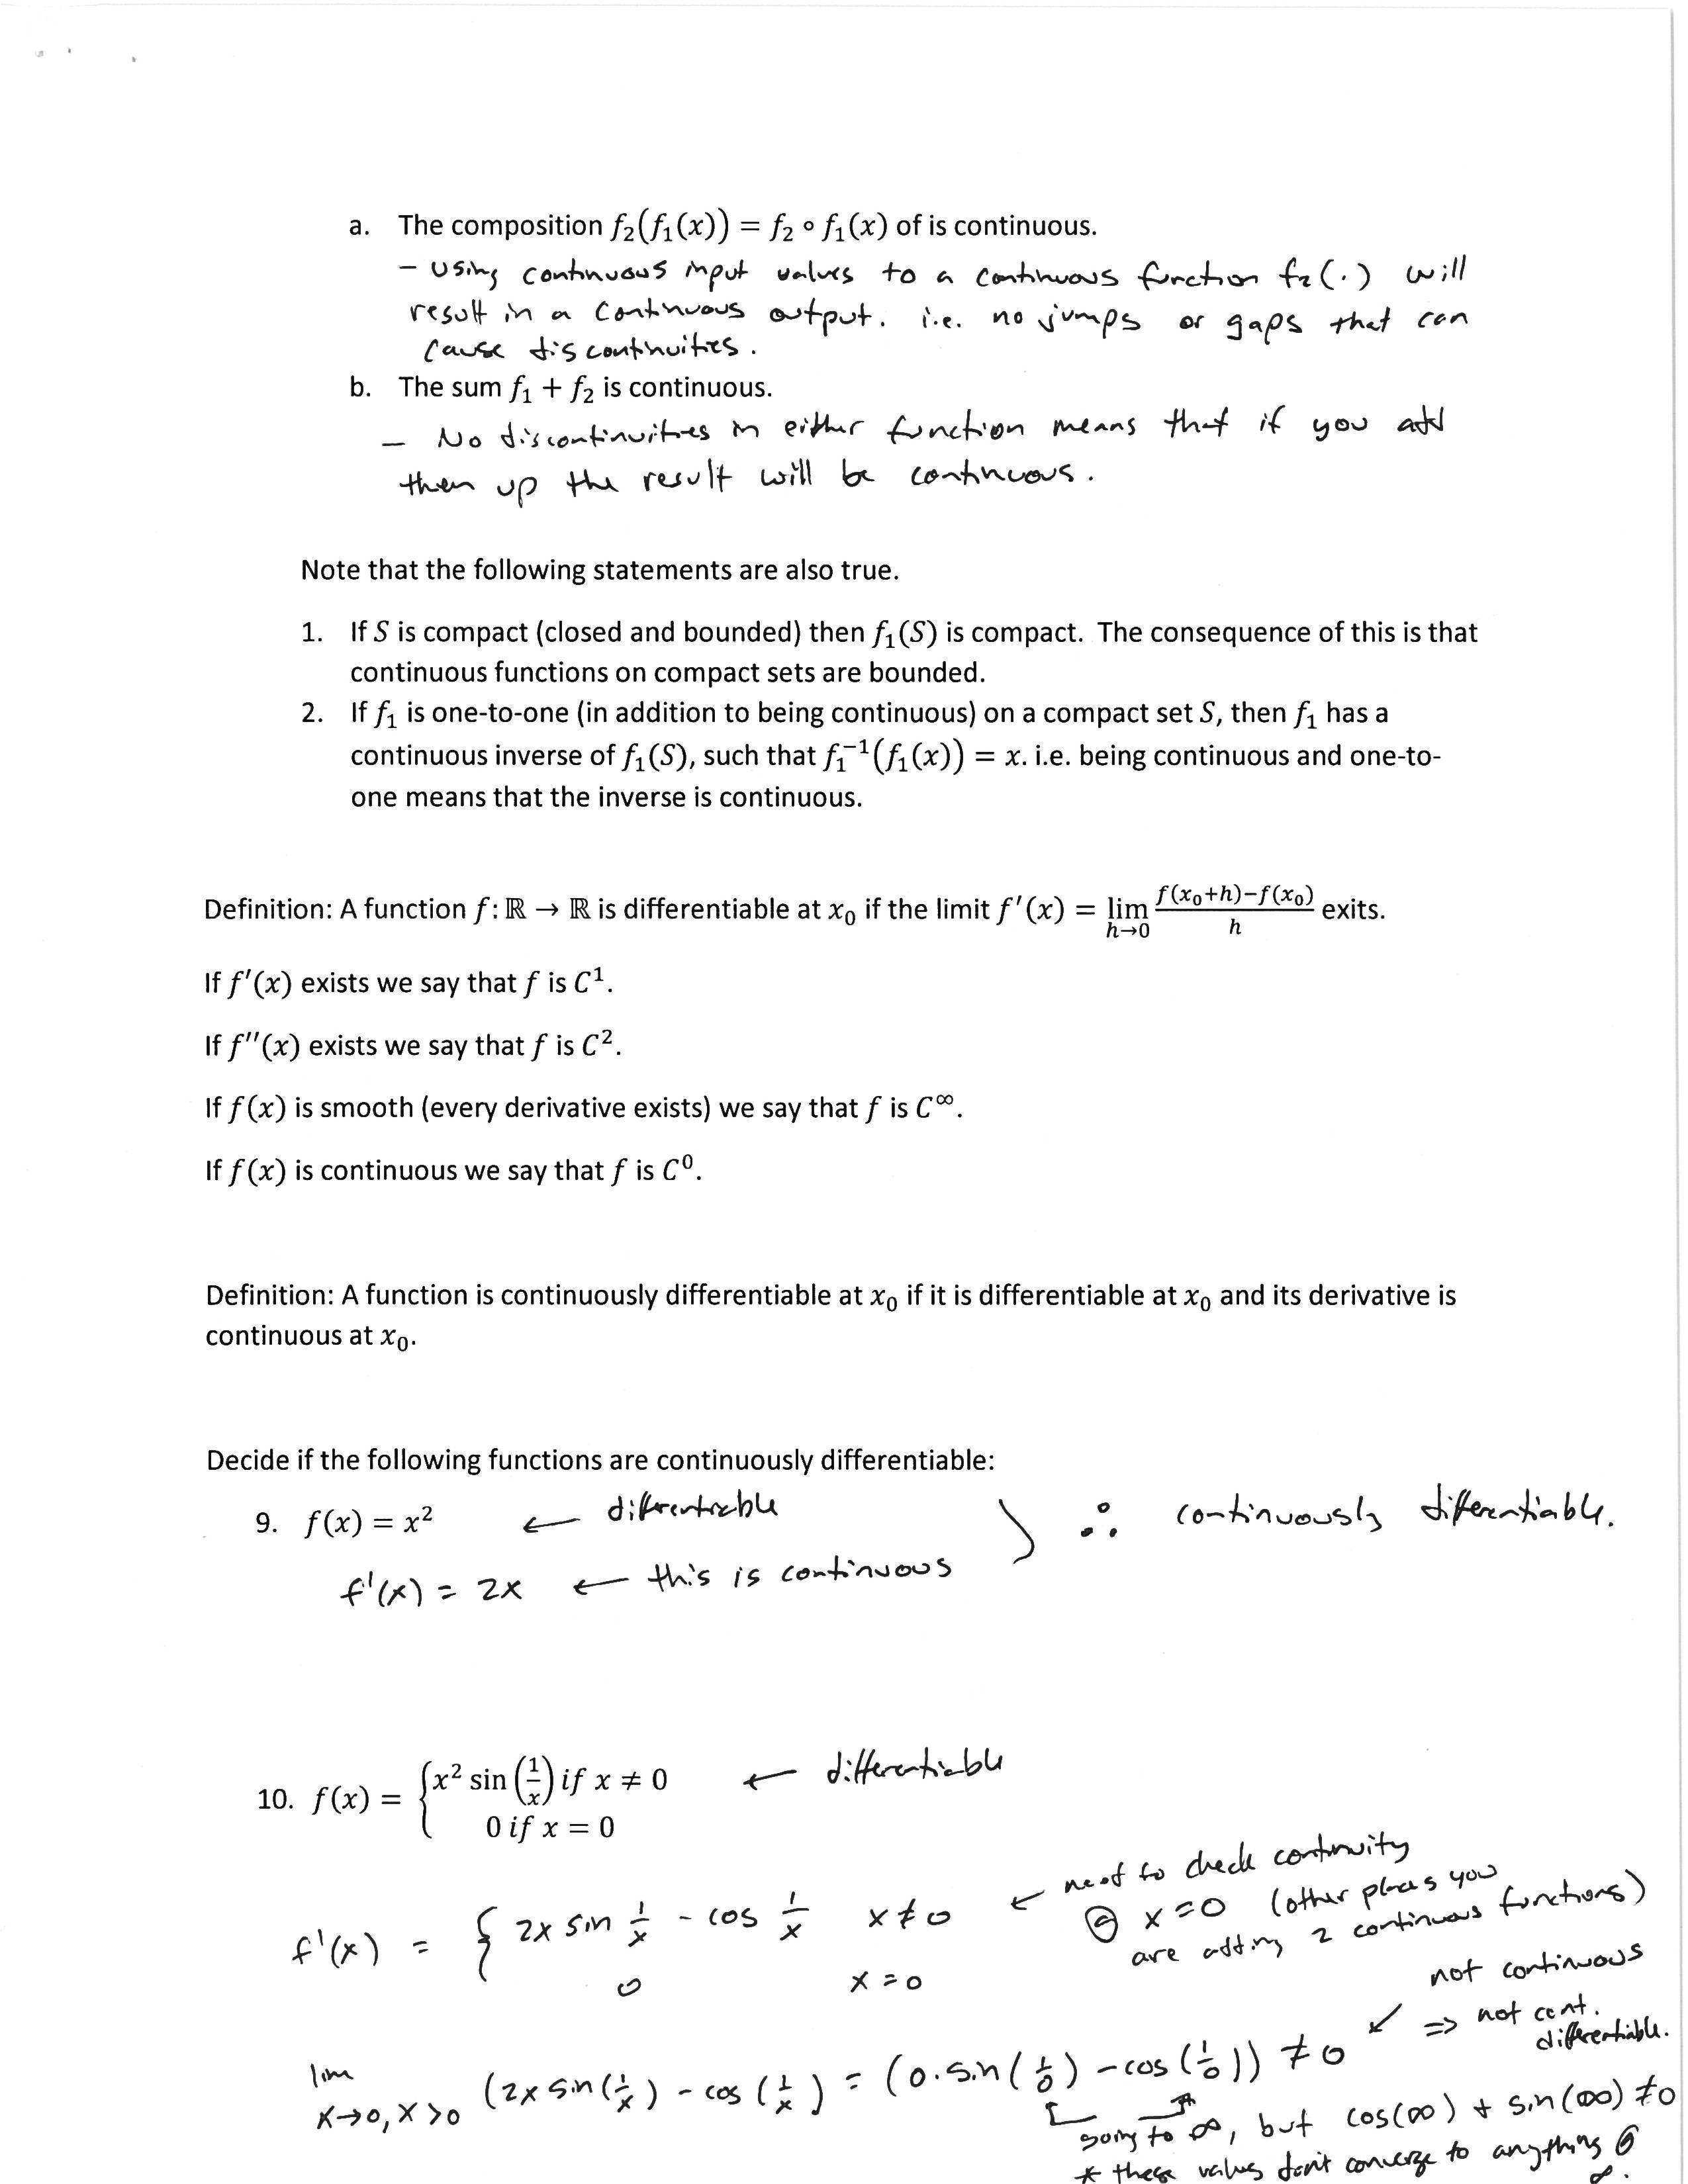 a. The composition f₂(f₁(x)) = f₂ ∘ f₁(x) of is continuous.
- Using continuous input values to a continuous function f₂(·) will
result in a continuous output. i.e. no jumps or gaps that can
cause discontinuities.
b. The sum f₁ + f₂ is continuous.
- No discontinuities in either function means that if you add
them up the result will be continuous.
Note that the following statements are also true.
1. If S is compact (closed and bounded) then f₁(S) is compact. The consequence of this is that
continuous functions on compact sets are bounded.
2. If f₁ is one-to-one (in addition to being continuous) on a compact set S, then f₁ has a
continuous inverse of f₁(S), such that f₁⁻¹(f₁(x)) = x. i.e. being continuous and one-to-
one means that the inverse is continuous.
Definition: A function f: ℝ → ℝ is differentiable at x₀ if the limit f′(x) = lim h→0 (f(x₀+h)−f(x₀))/h exits.
If f′(x) exists we say that f is C¹.
If f″(x) exists we say that f is C².
If f(x) is smooth (every derivative exists) we say that f is C^∞.
If f(x) is continuous we say that f is C⁰.
Definition: A function is continuously differentiable at x₀ if it is differentiable at x₀ and its derivative is
continuous at x₀.
Decide if the following functions are continuously differentiable:
9. f(x) = x² ← differentiable ) ∴ continuously differentiable.
f'(x) = 2x ← this is continuous
10. f(x) = { x² sin(1/x) if x ≠ 0 ← differentiable
0 if x = 0
f'(x) = { 2x sin 1/x - cos 1/x x ≠ 0 ← need to check continuity
@ x=0 (other places you
are adding 2 continuous functions)
0 x = 0
not continuous
⇒ not cont.
differentiable.
lim x→0, x>0 (2x sin(1/x) - cos(1/x)) = (0·sin(1/0) - cos(1/0)) ≠ 0
going to ∞, but cos(∞) + sin(∞) ≠ 0
* these values don't converge to anything @
∞.